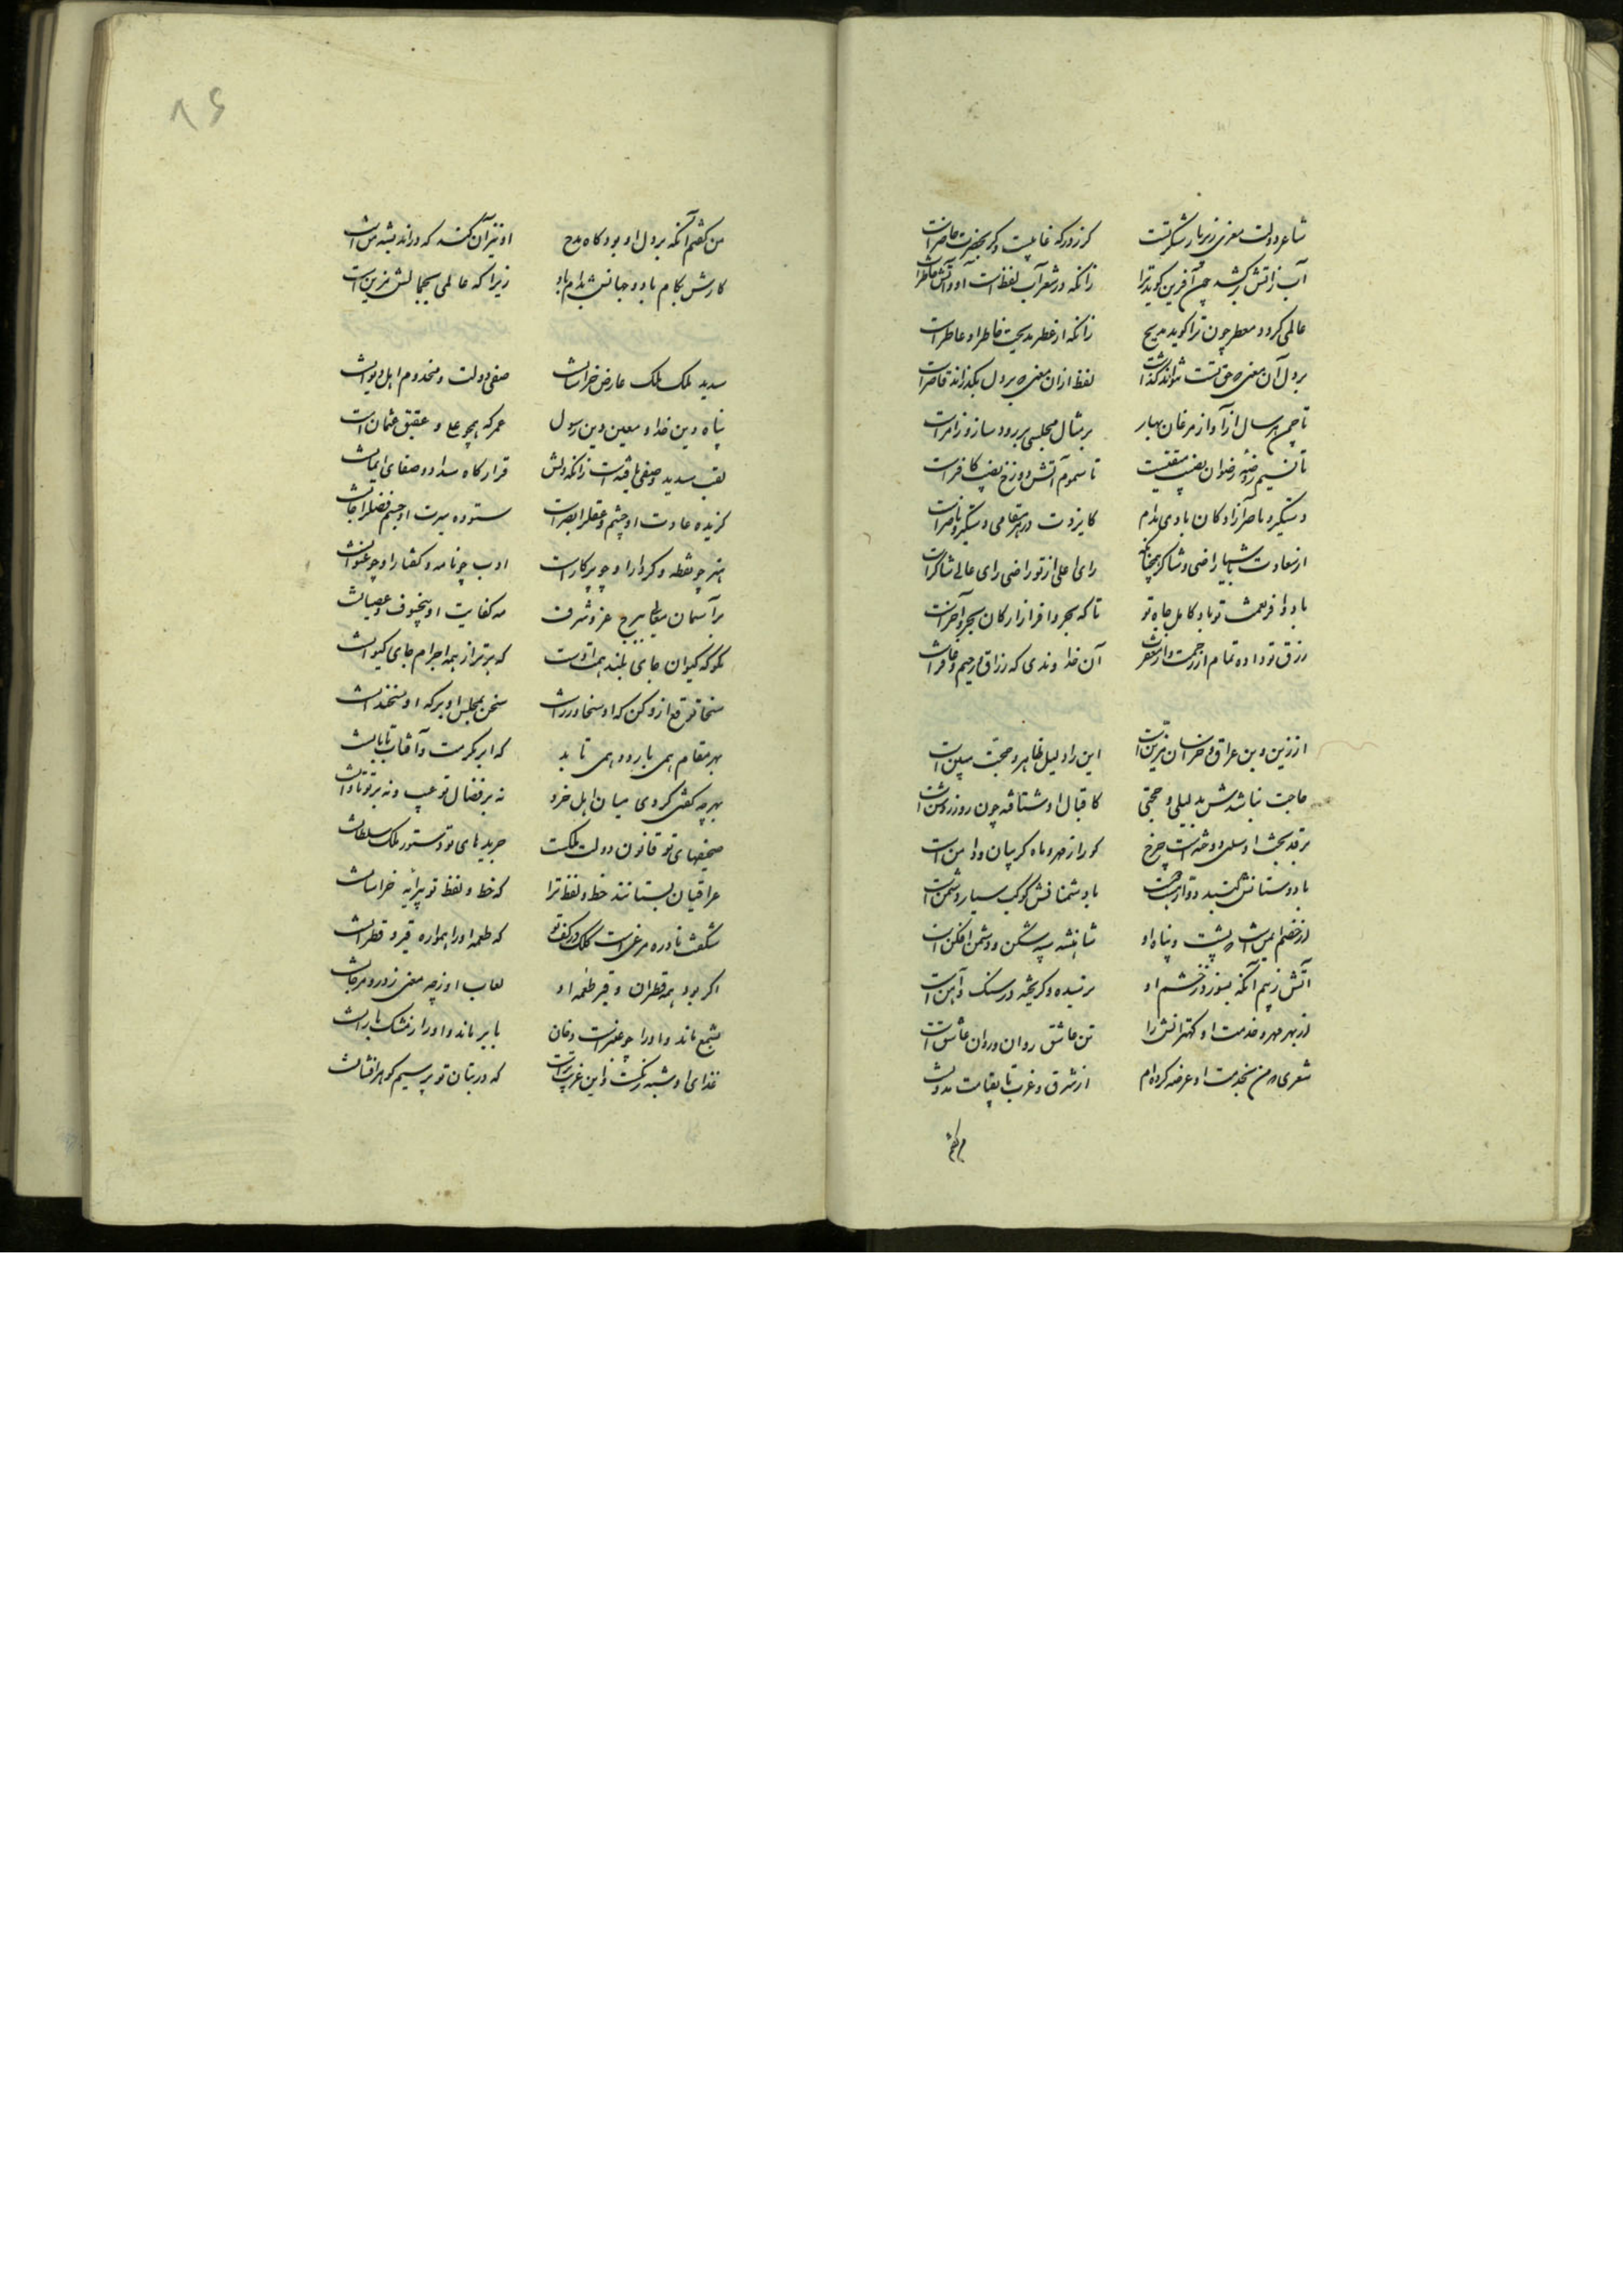 شاعر دولت معزی زیر بار شکر تست
کر ز درکه غایبست و کر بحضرت حاضر است
آب ز آتش برکشد چون آفرین کوید ترا
زانکه در شعر آب لفظ است او و آتش خاطر است
عالمی کردد معطر چون ترا کوید مدیح
زانکه از عطر مدیحت خاطر او عاطر است
بر دل آن معنی که حق تست نتواند گذاشت
لفظ از ان معنی که بر دل بگذراند قاصر است
تا چمن هر سال از آواز مرغان بهار
بر مثال مجلسی پر رود ساز و زامر است
تا نسیم روضه رضوان نصیب متقیست
تا سموم آتش دوزخ نصیب کافر است
دستکیر و ناصر آزادکان بادی مدام
کایزدت در هر مقامی دستکیر و ناصر است
از سعادت باش راضی و شاکر همچنانک
رای اعلی از تو راضی رای عالی شاکر است
باد وافر نعمت تو باد کامل جاه تو
تا که بحر وافر از ارکان بحر و آخر است
رزق تو داده تمام از رحمت و از مغفرت
آن خداوندی که رزاق و رحیم و غافر است
از زین دین عراق و خراسان مزین است
این را دلیل ظاهر و حجت مبین است
حاجت نباشدش بدلیلی و حجتی
کاقبال او شناخته چون روز روشن است
بر قد بخت او سلبی دوخته است چرخ
کو را ز مهر و ماه کریبان و دامن است
با دوستانش کنبد دوار دوست
با دشمنانش کوکب سیار دشمن است
از خصم ایمن است که پشت و پناه او
شاهنشه سپه شکن و دشمن افکن است
آتش ز بیم آنکه بسوزد ز خشم او
ترسیده و کریخته در سنک و آهن است
از بهر مهر و خدمت او کهترانش را
تن عاشق روان و روان عاشق تن است
شعری که من بخدمت او عرضه کرده ام
از شرق و غرب تا بقیامت مدونست
من کفتم
من کفتم آنکه بر دل او بود کاه مدح
او نیز آن کند که در اندیشه من است
کارش بکام باد و جانش پدرام باد
زیرا که عالمی بجمالش مزین است
سدید ملک ملک عارض خراسانست
صفی دولت و مخدوم اهل دیوانست
پناه دین خدا و معین دین رسول
عمر که همچو علی و عتیق و عثمان است
لقب سدید و صفی یافته است زانکه دلش
قرارکاه سداد و صفای ایمانست
کزیده عادت او چشم و عقل را بصر است
ستوده سیرت او جسم فضل را جانست
هنر چو نقطه و کردار او چو پرکار است
ادب چو نامه و کفتار او چو عنوانست
بر آسمان معالی ببرج عز و شرف
مه کفایت او بیخسوف و نقصانست
مکو که کیوان جای بلند همت اوست
که برتر از همه اجرام جای کیوانست
سخا توقع از و کن که او سخاورزست
سخن بمجلس او بر که او سخندانست
بهر مقام همی بارد و همی تابد
که ابر مکرمت و آفتاب تابانست
بهر چه کفتی کردی میان اهل خرد
نه بر فضال تو عیب و نه بر تو تاوانست
صحیفهای تو قانون دولت ملکست
جریدهای تو دستور ملک سلطانست
عراقیان بستانند خط و لفظ ترا
که خط و لفظ تو پیرایه خراسانست
شکفت نادره مرغی است کلک در کف تو
که طعمه او را همواره قیر و قطرانست
اکر بود همه قطران و قیر طعمه او
لعاب او ز چه معنی ز در و مرجانست
بشمع ماند و او را چو عنبر است دخان
بابر ماند و او را ز مشک بارانست
غذای او شبه رنکست و این غریبتر است
که در بنان تو بر سیم کوهر افشانست